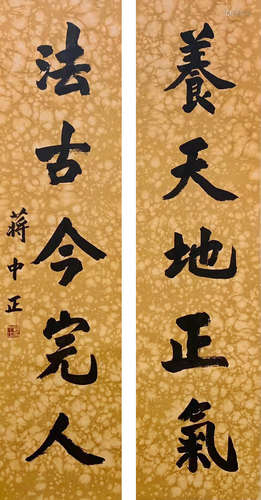 養天地正氣
法古今完人
蔣中正